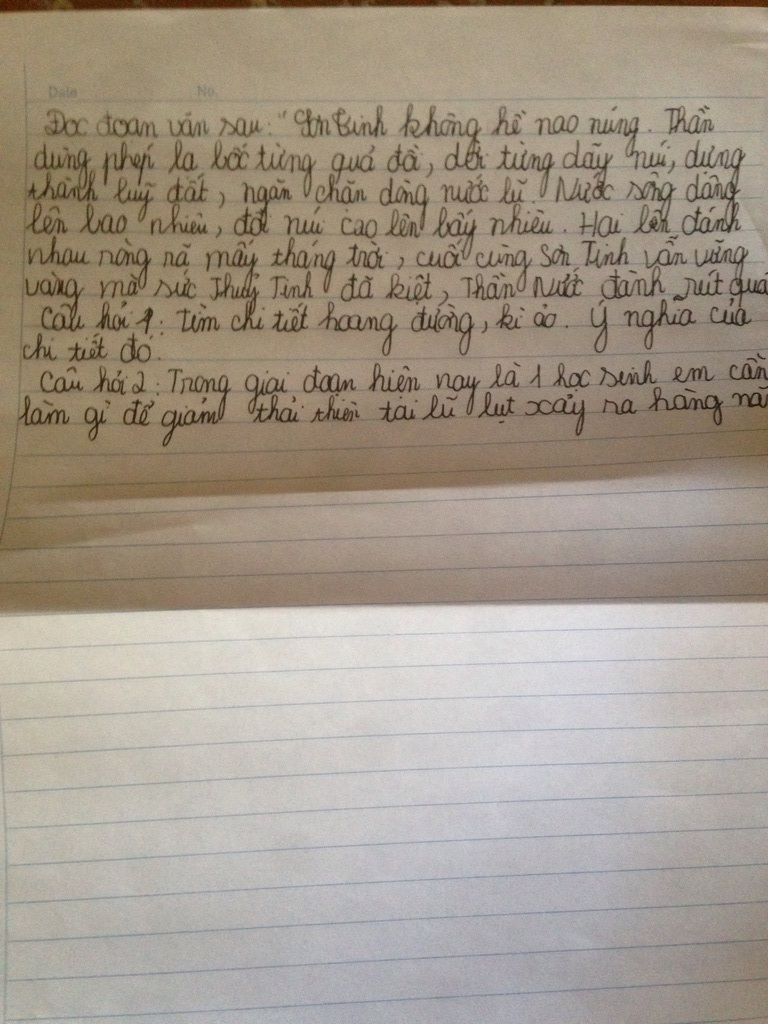 Date No.
Đọc đoạn văn sau: "Sơn Tinh không hề nao núng. Thần
dùng phép lạ bốc từng quả đồi, dời từng dãy núi, dựng
thành luỹ đất, ngăn chặn dòng nước lũ. Nước sông dâng
lên bao nhiêu, đồi núi cao lên bấy nhiêu. Hai bên đánh
nhau ròng rã mấy tháng trời, cuối cùng Sơn Tinh vẫn vững
vàng mà sức Thuỷ Tinh đã kiệt, Thần Nước đành rút quâ
Câu hỏi 1: Tìm chi tiết hoang đường, kì ảo. Ý nghĩa của
chi tiết đó.
Câu hỏi 2: Trong giai đoạn hiện nay là 1 học sinh em cần
làm gì để giảm thải thiên tai lũ lụt xảy ra hàng nă